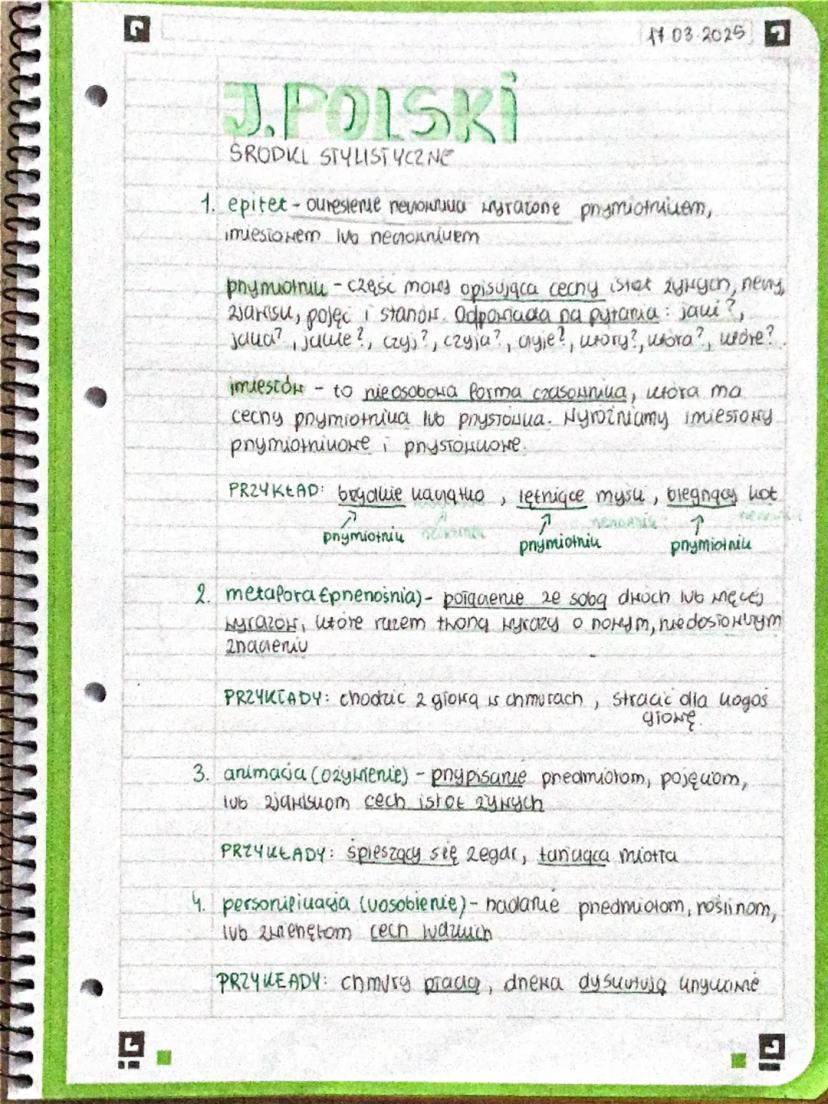 17.03.2025
J. POLSKI
ŚRODKI STYLISTYCZNE
1. epitet - określenie rzeczownika wyrażone przymiotnikiem,
imiesłowem lub rzeczownikiem
przymiotnik - część mowy opisująca cechy istot żywych, rzeczy,
zjawisk, pojęć i stanów. Odpowiada na pytania: jaki?,
jaka?, jakie?, czyj?, czyja?, czyje?, który?, która?, które?
imiesłów - to nieosobowa forma czasownika, która ma
cechy przymiotnika lub przysłówka. Wyróżniamy imiesłowy
przymiotnikowe i przysłówkowe.
PRZYKŁAD: brzydkie kaczątko, tętniące mysli, biegnący kot
przymiotnik przymiotnik przymiotnik
2. metafora (przenośnia) - połączenie ze sobą dwóch lub więcej
wyrazów, które razem tworzą wyrazy o nowym, niedosłownym
znaczeniu
PRZYKŁADY: chodzić z głową w chmurach, stracić dla kogoś
głowę.
3. animacja (ożywienie) - przypisanie przedmiotom, pojęciom,
lub zjawiskom cech istot żywych
PRZYKŁADY: śpieszący się zegar, tańcząca miotła
4. personifikacja (uosobienie) - nadanie przedmiotom, roślinom,
lub zwierzętom cech ludzkich
PRZYKŁADY: chmury płaczą, drzewa dyskutują